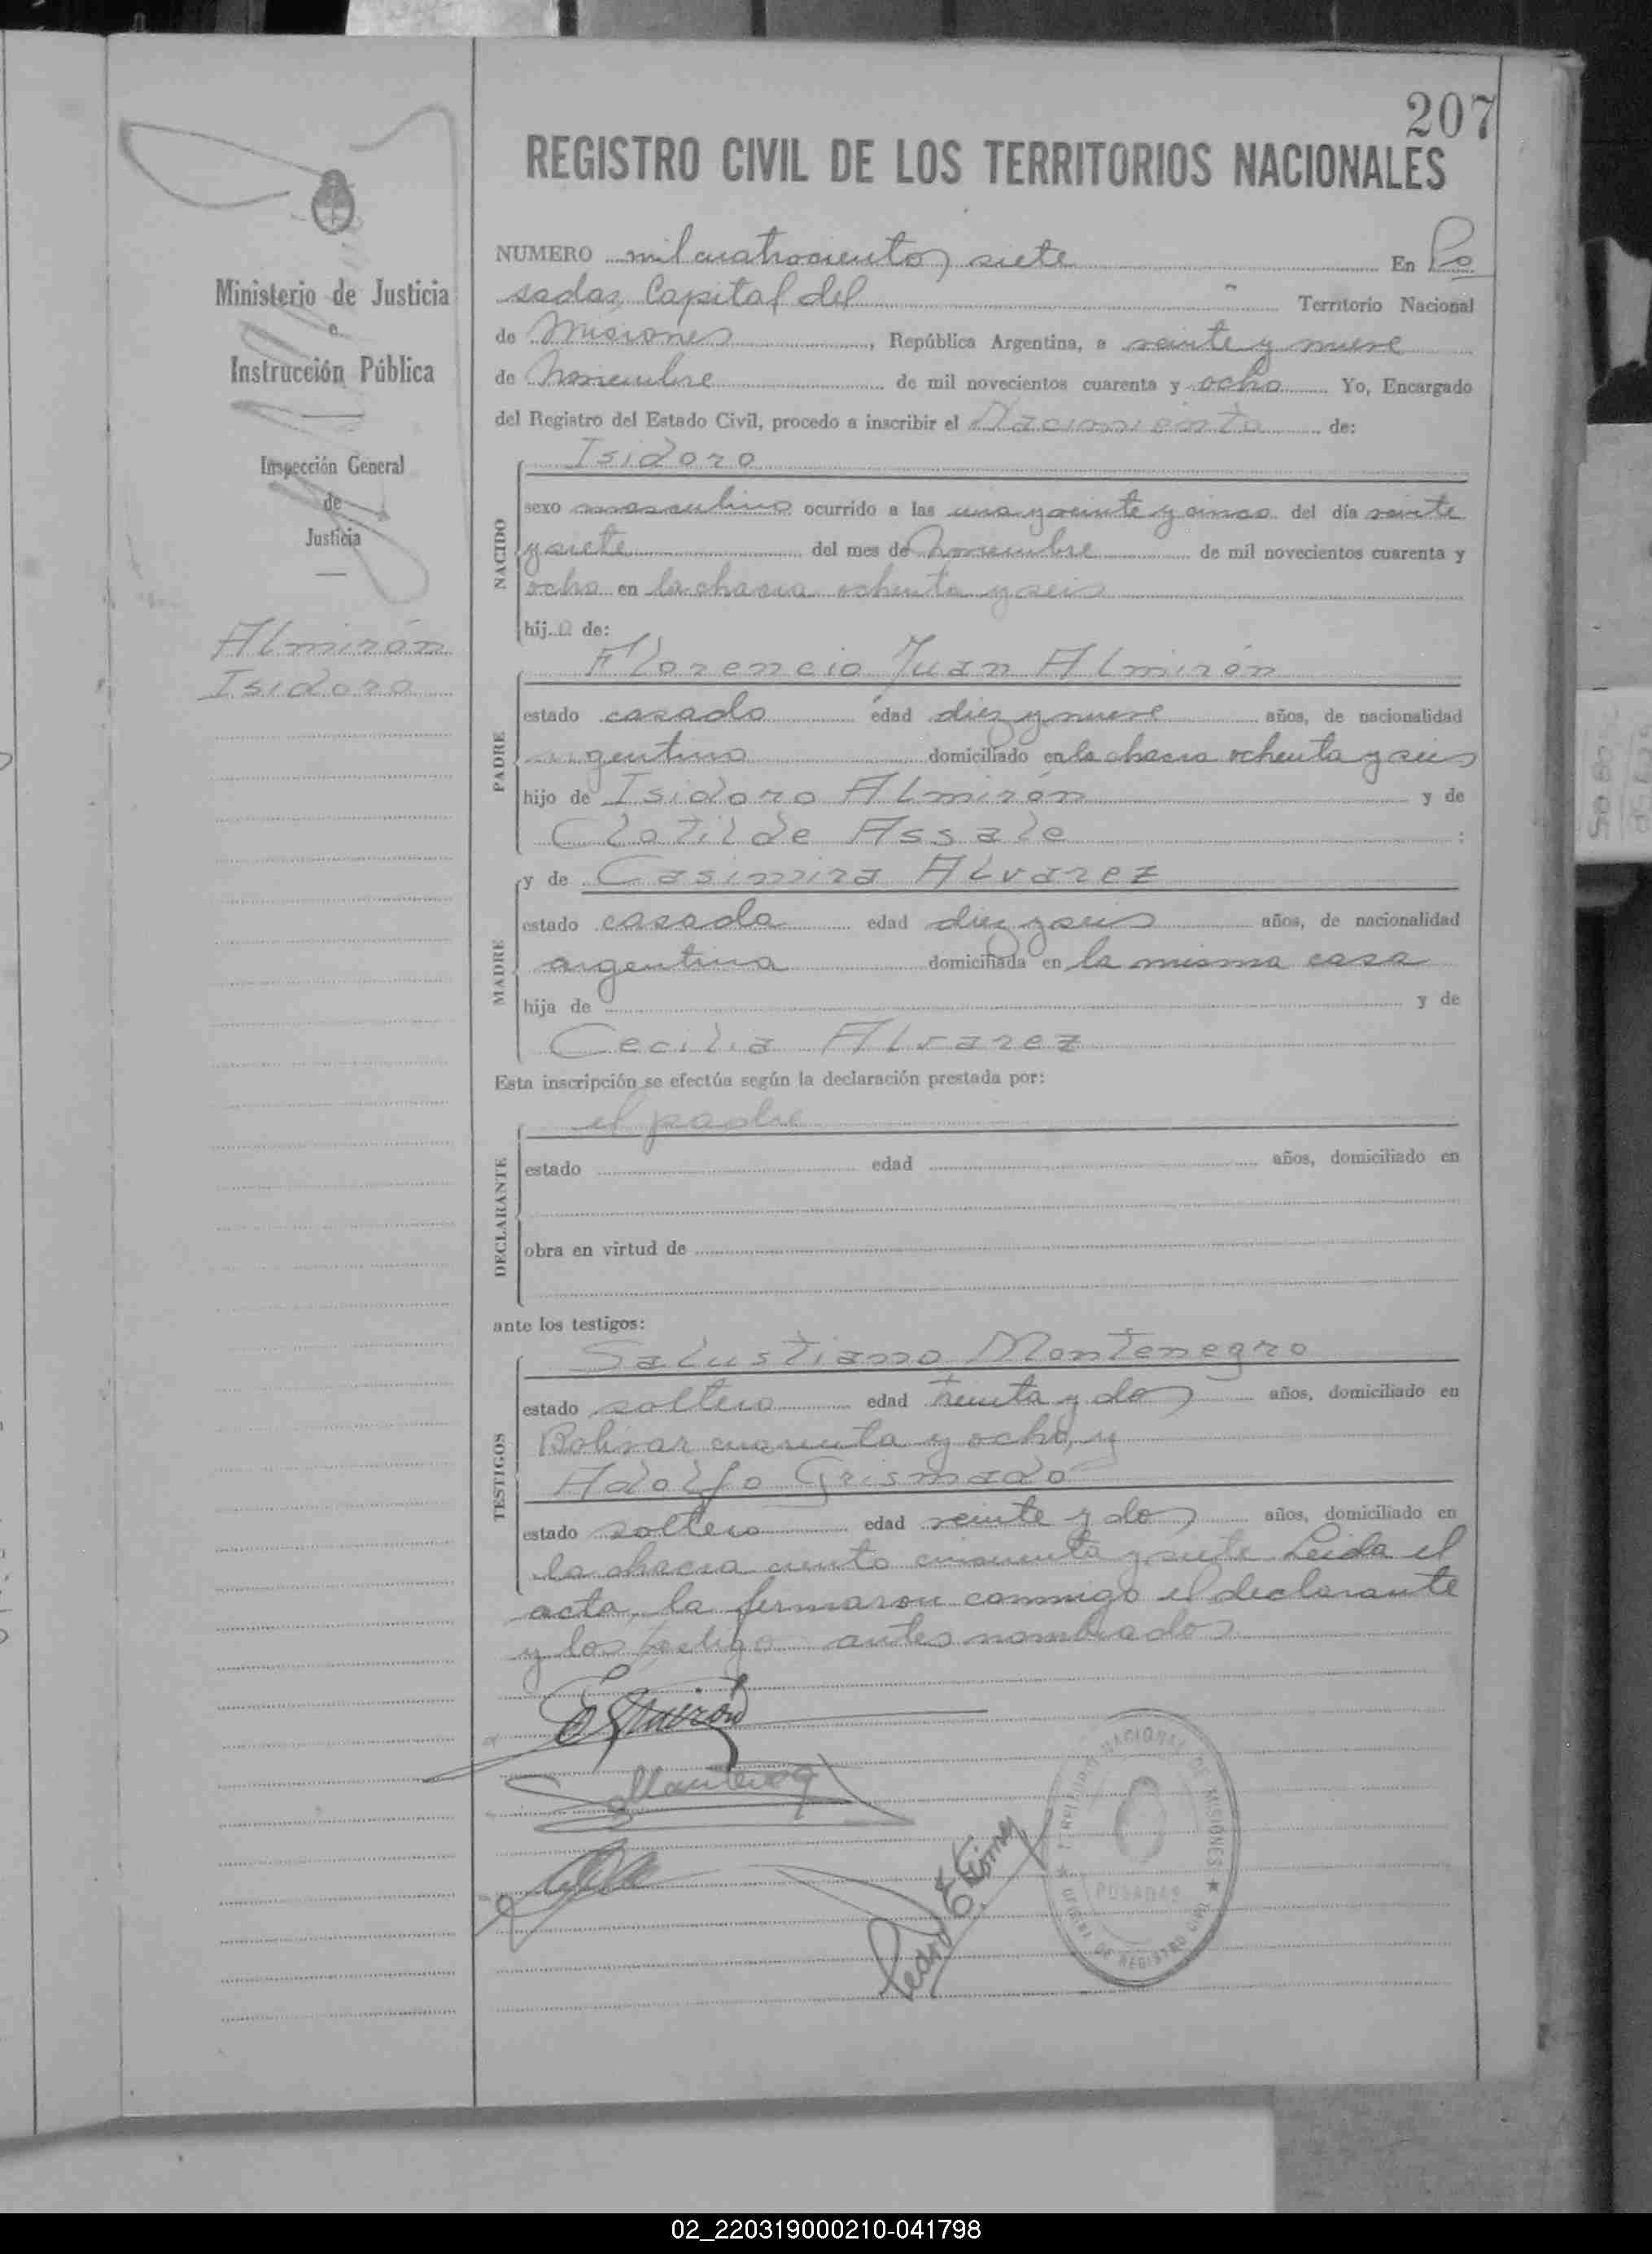 207
REGISTRO CIVIL DE LOS TERRITORIOS NACIONALES
Ministerio de Justicia
e
Instrucción Pública
Inspección General
de
Justicia
Almirón
Isidoro
NUMERO mil cuatrocientos siete En Po
sadas, Capital del Territorio Nacional
de Misiones, República Argentina, a veinte y nueve
de Noviembre de mil novecientos cuarenta y ocho Yo, Encargado
del Registro del Estado Civil, procedo a inscribir el Nacimiento de:
Isidoro
NACIDO
sexo masculino ocurrido a las una y veinte y cinco del día veinte
y siete del mes de Noviembre de mil novecientos cuarenta y
ocho en la chacra ochenta y seis
hijo de:
Florencio Juan Almirón
PADRE
estado casado edad diez y nueve años, de nacionalidad
argentino domiciliado en la chacra ochenta y seis
hijo de Isidoro Almirón y de
Clotilde Assale :
y de Casimira Alvarez
MADRE
estado casada edad diez y seis años, de nacionalidad
argentina domiciliada en la misma casa
hija de y de
Cecilia Alvarez
Esta inscripción se efectúa según la declaración prestada por:
el padre
DECLARANTE
estado edad años, domiciliado en
obra en virtud de
ante los testigos:
Salustiano Montenegro
TESTIGOS
estado soltero edad treinta y dos años, domiciliado en
Bolivar cuarenta y ocho, y
Adolfo Grismado
estado soltero edad veinte y dos años, domiciliado en
la chacra ciento cincuenta y siete. Leida el
acta, la firmaron conmigo el declarante
y los testigos antes nombrados
TERRITORIO NACIONAL DE MISIONES
POSADAS
OFICINA DE REGISTRO CIVIL
02_220319000210-041798